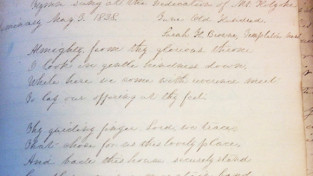 Hymn sung at the dedication of Mt. Holyoke
Seminary May 3, 1838. Tune Old Hundred.
Sarah H. Browne, Templeton
Almighty from thy glorious throne
Look in gentle kindness down
While here we come with reverence meet
To lay our offering at thy feet
Thy guiding finger Lord we trace
That chose for us this lovely place
And bade this house securely stand